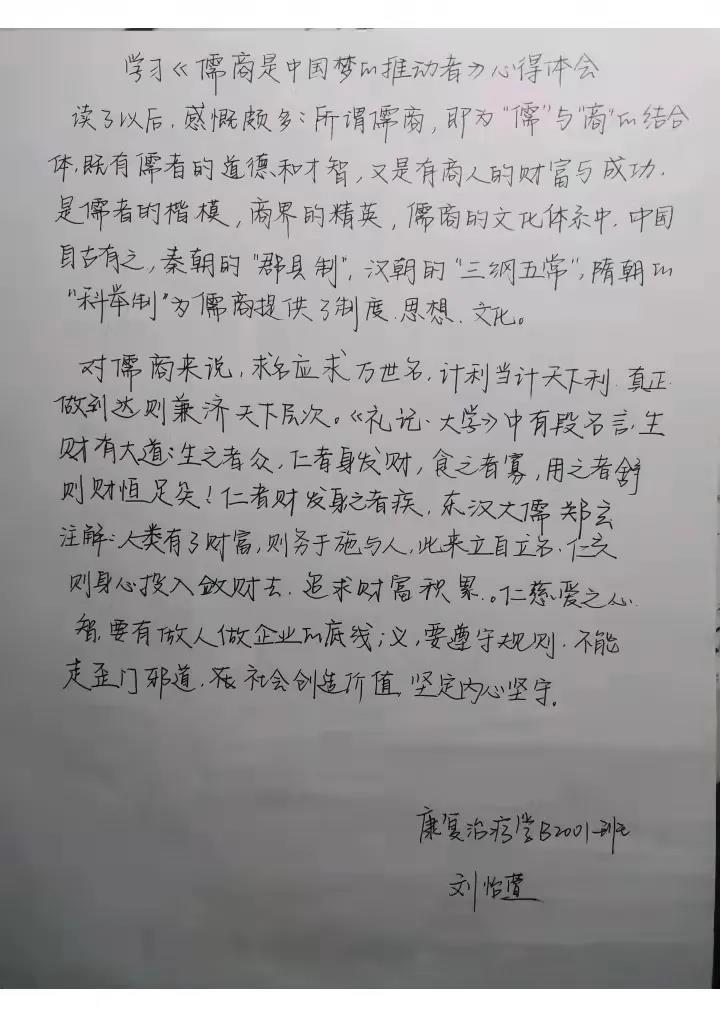 学习《儒商是中国梦的推动者》心得体会
读了以后，感慨颇多：所谓儒商，即为"儒"与"商"的结合
体，既有儒者的道德和才智，又是有商人的财富与成功，
是儒者的楷模，商界的精英，儒商的文化体系中，中国
自古有之，秦朝的"郡县制"，汉朝的"三纲五常"，隋朝的
"科举制"为儒商提供了制度、思想、文化。
对儒商来说，求名应求万世名，计利当计天下利，真正
做到达则兼济天下层次。《礼记·大学》中有段名言，生
财有大道：生之者众，仁者身发财，食之者寡，用之者舒
则财恒足矣！仁者财发身之者疾，东汉大儒郑玄
注解：人类有了财富，则务于施与人，此来立自立名，仁
则身心投入敛财去，追求财富积累。仁慈爱之心，
智，要有做人做企业的底线；义，要遵守规则，不能
走歪门邪道，在社会创造价值，坚定内心坚守。
康复治疗学B2001班
刘怡萱